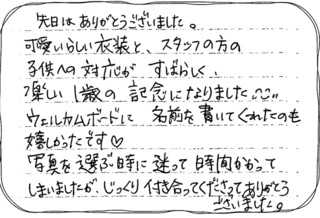 先日はありがとうございました。
可愛いらしい衣装と、スタッフの方の
子供への対応が すばらしく、
楽しい 1歳の 記念になりました
ウェルカムボードに 名前を書いてくれたのも
嬉しかったです♡
写真を選ぶ時に 迷って 時間かかって
しまいましたが、じっくり付き合ってくださってありがとう
ございました。